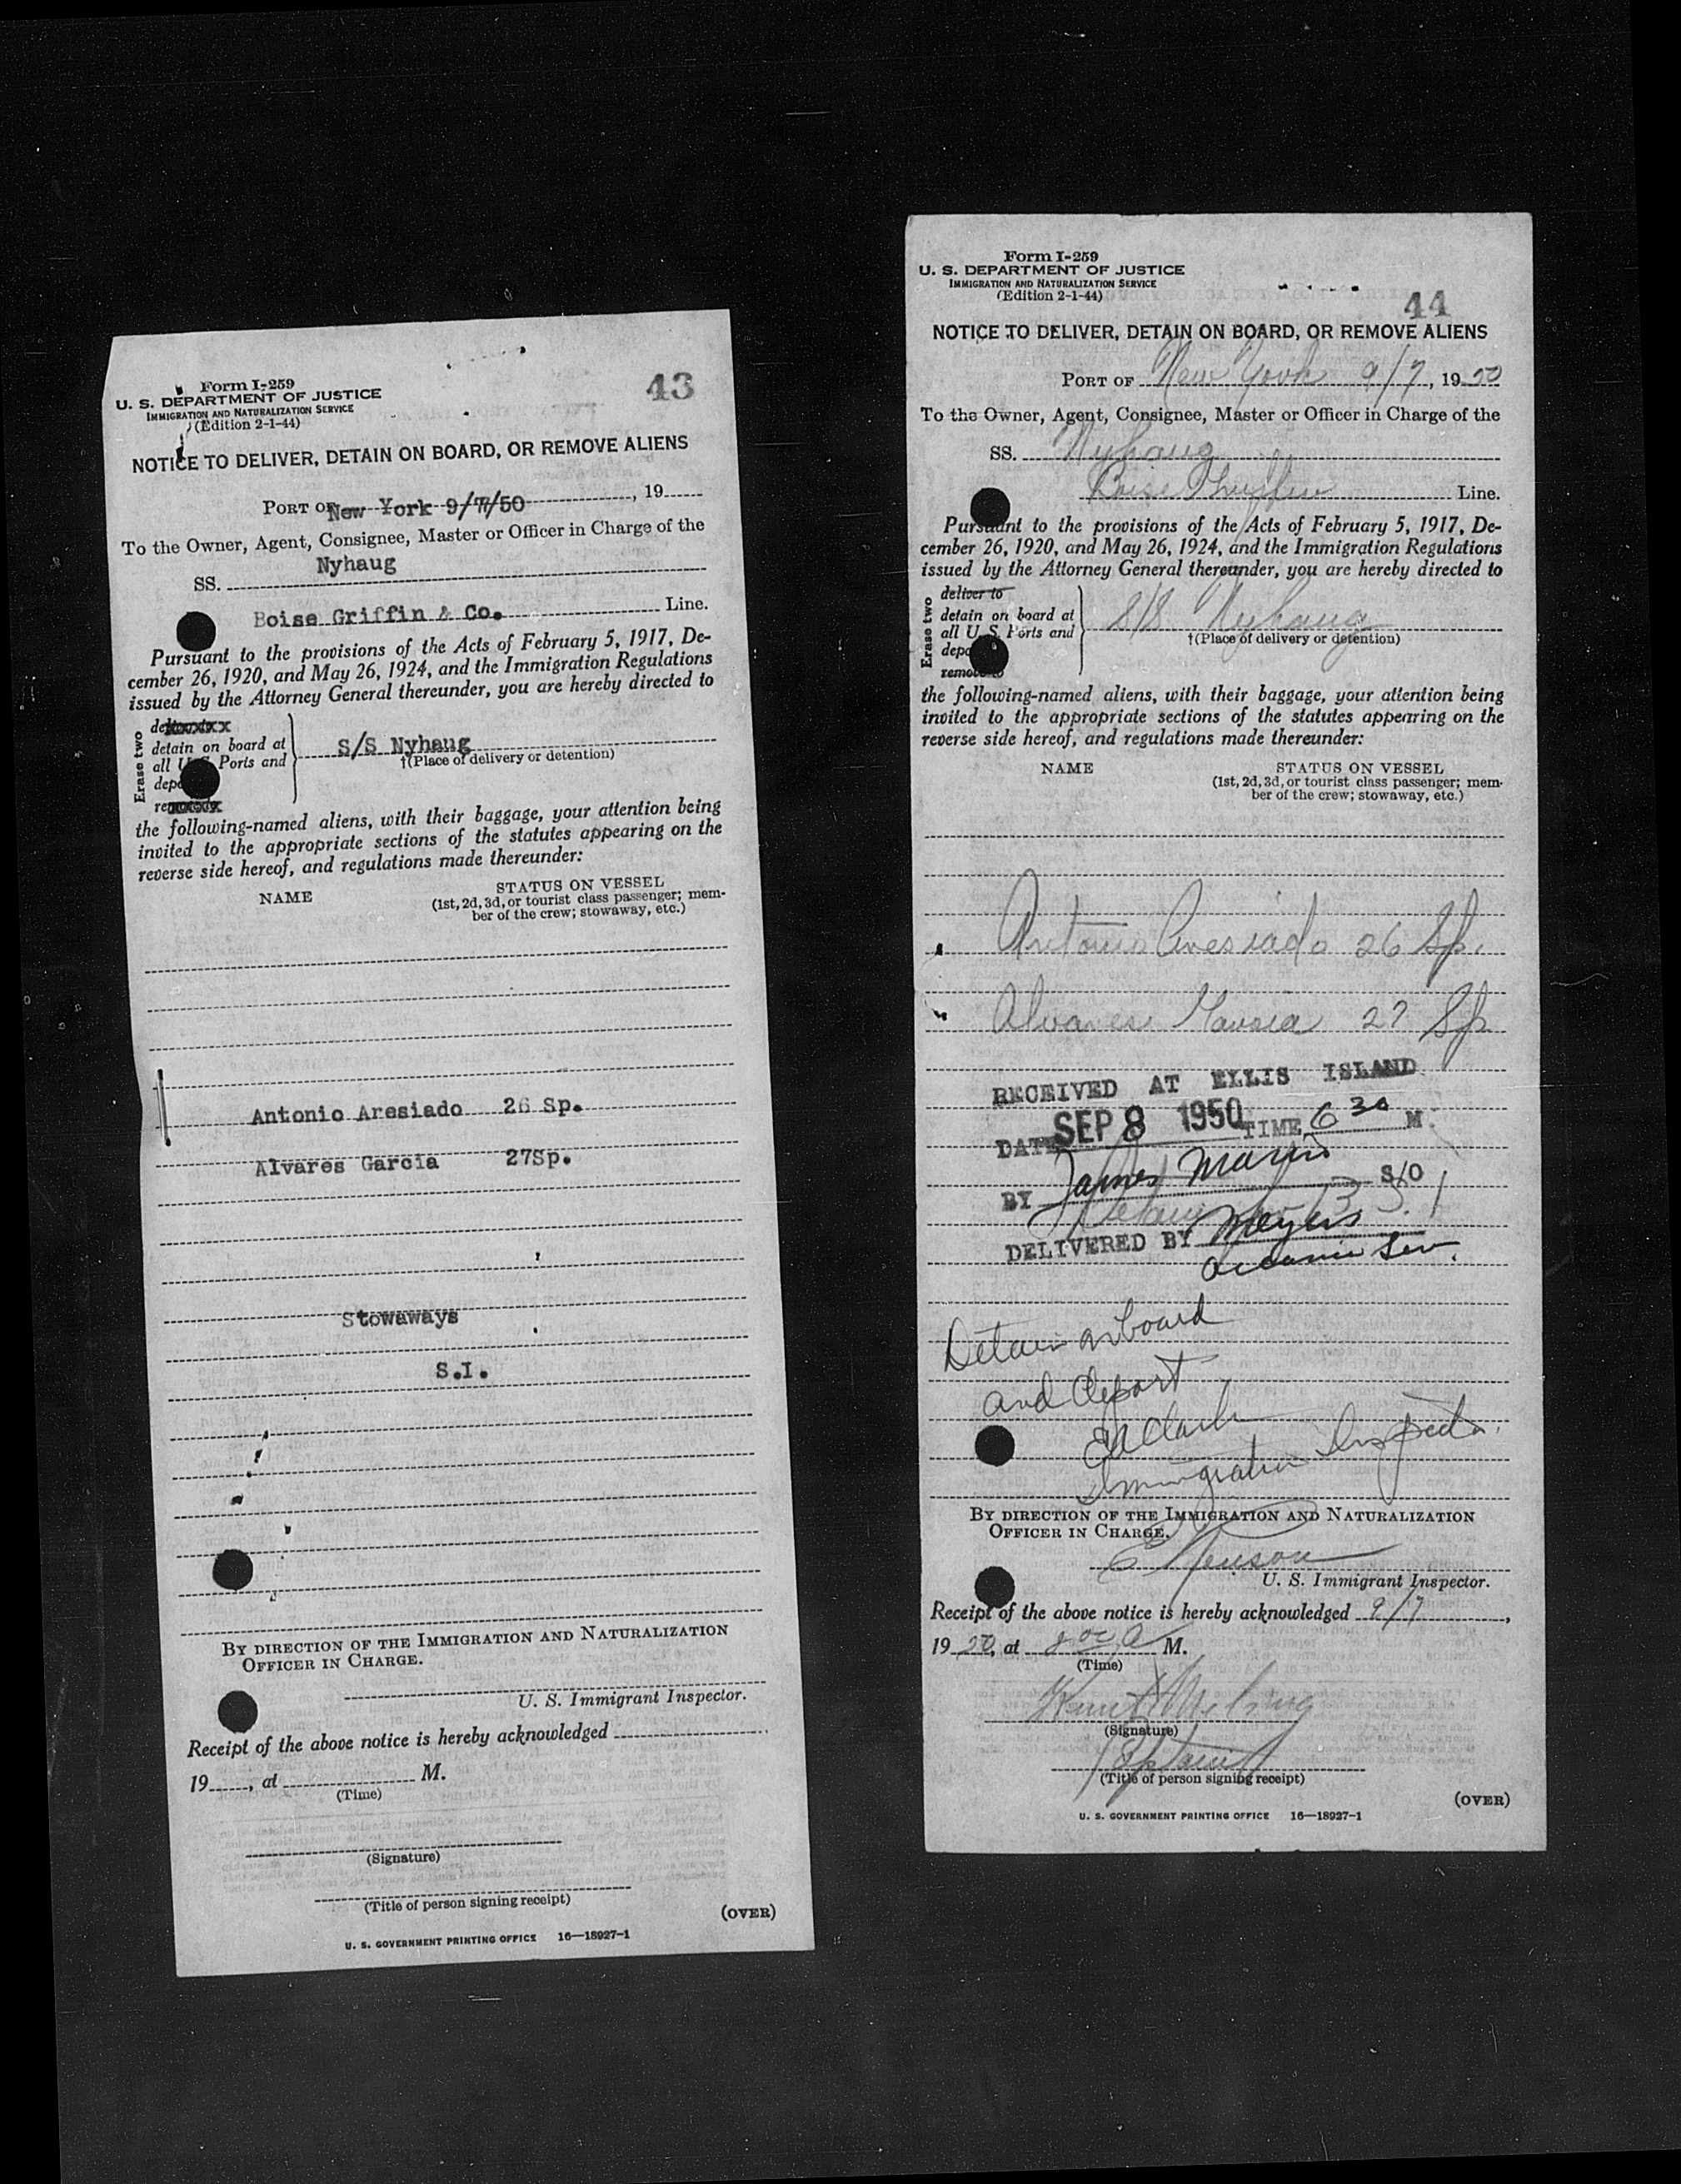 Form I-259
U. S. DEPARTMENT OF JUSTICE
IMMIGRATION AND NATURALIZATION SERVICE
(Edition 2-1-44)
43
NOTICE TO DELIVER, DETAIN ON BOARD, OR REMOVE ALIENS
PORT OF New York 9/7/50, 19
To the Owner, Agent, Consignee, Master or Officer in Charge of the
SS. Nyhaug
Boise Griffin & Co. Line.
Pursuant to the provisions of the Acts of February 5, 1917, De-
cember 26, 1920, and May 26, 1924, and the Immigration Regulations
issued by the Attorney General thereunder, you are hereby directed to
Erase two
detain on board at
all U. S. Ports and
S/S Nyhaug
†(Place of delivery or detention)
the following-named aliens, with their baggage, your attention being
invited to the appropriate sections of the statutes appearing on the
reverse side hereof, and regulations made thereunder:
NAME
STATUS ON VESSEL
(1st, 2d, 3d, or tourist class passenger; mem-
ber of the crew; stowaway, etc.)
Antonio Aresiado 26 Sp.
Alvares Garcia 27Sp.
Stowaways
S.I.
BY DIRECTION OF THE IMMIGRATION AND NATURALIZATION
OFFICER IN CHARGE.
U. S. Immigrant Inspector.
Receipt of the above notice is hereby acknowledged
19, at M.
(Time)
(Signature)
(Title of person signing receipt)
(OVER)
U. S. GOVERNMENT PRINTING OFFICE 16—18927-1
Form I-259
U. S. DEPARTMENT OF JUSTICE
IMMIGRATION AND NATURALIZATION SERVICE
(Edition 2-1-44)
44
NOTICE TO DELIVER, DETAIN ON BOARD, OR REMOVE ALIENS
PORT OF New York 9/7, 1950
To the Owner, Agent, Consignee, Master or Officer in Charge of the
SS. Nyhaug
Boise Line.
Pursuant to the provisions of the Acts of February 5, 1917, De-
cember 26, 1920, and May 26, 1924, and the Immigration Regulations
issued by the Attorney General thereunder, you are hereby directed to
Erase two
deliver to
detain on board at
all U. S. Ports and
remove to
S/S Nyhaug
†(Place of delivery or detention)
the following-named aliens, with their baggage, your attention being
invited to the appropriate sections of the statutes appearing on the
reverse side hereof, and regulations made thereunder:
NAME
STATUS ON VESSEL
(1st, 2d, 3d, or tourist class passenger; mem-
ber of the crew; stowaway, etc.)
Antonio Aresiado 26 Sp.
Alvares Garcia 27 Sp
RECEIVED AT ELLIS ISLAND
DATE SEP 8 1950 TIME 6 30 M.
BY James S/O
DELIVERED BY Meyers
Detain on board
and deport
Clark
Immigration Inspector.
BY DIRECTION OF THE IMMIGRATION AND NATURALIZATION
OFFICER IN CHARGE.
U. S. Immigrant Inspector.
Receipt of the above notice is hereby acknowledged 9/7,
1950, at A M.
(Time)
(Signature)
Captain
(Title of person signing receipt)
(OVER)
U. S. GOVERNMENT PRINTING OFFICE 16—18927-1